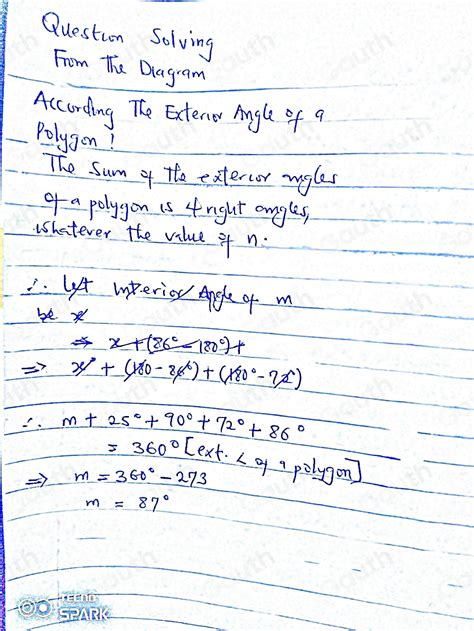 Question Solving
From The Diagram
According The Exterior Angle of a
Polygon!
The Sum of the exterior angles
of a polygon is 4 right angles,
whatever the value of n.
∴ let interior Angle of m
be x
⇒ x + (86° - 180°) +
⇒ x° + (180 - 86°) + (180° - 72°)
∴ m + 25° + 90° + 72° + 86°
= 360° [ext. < of a polygon]
⇒ m = 360° - 273
m = 87°
TECNO
SPARK